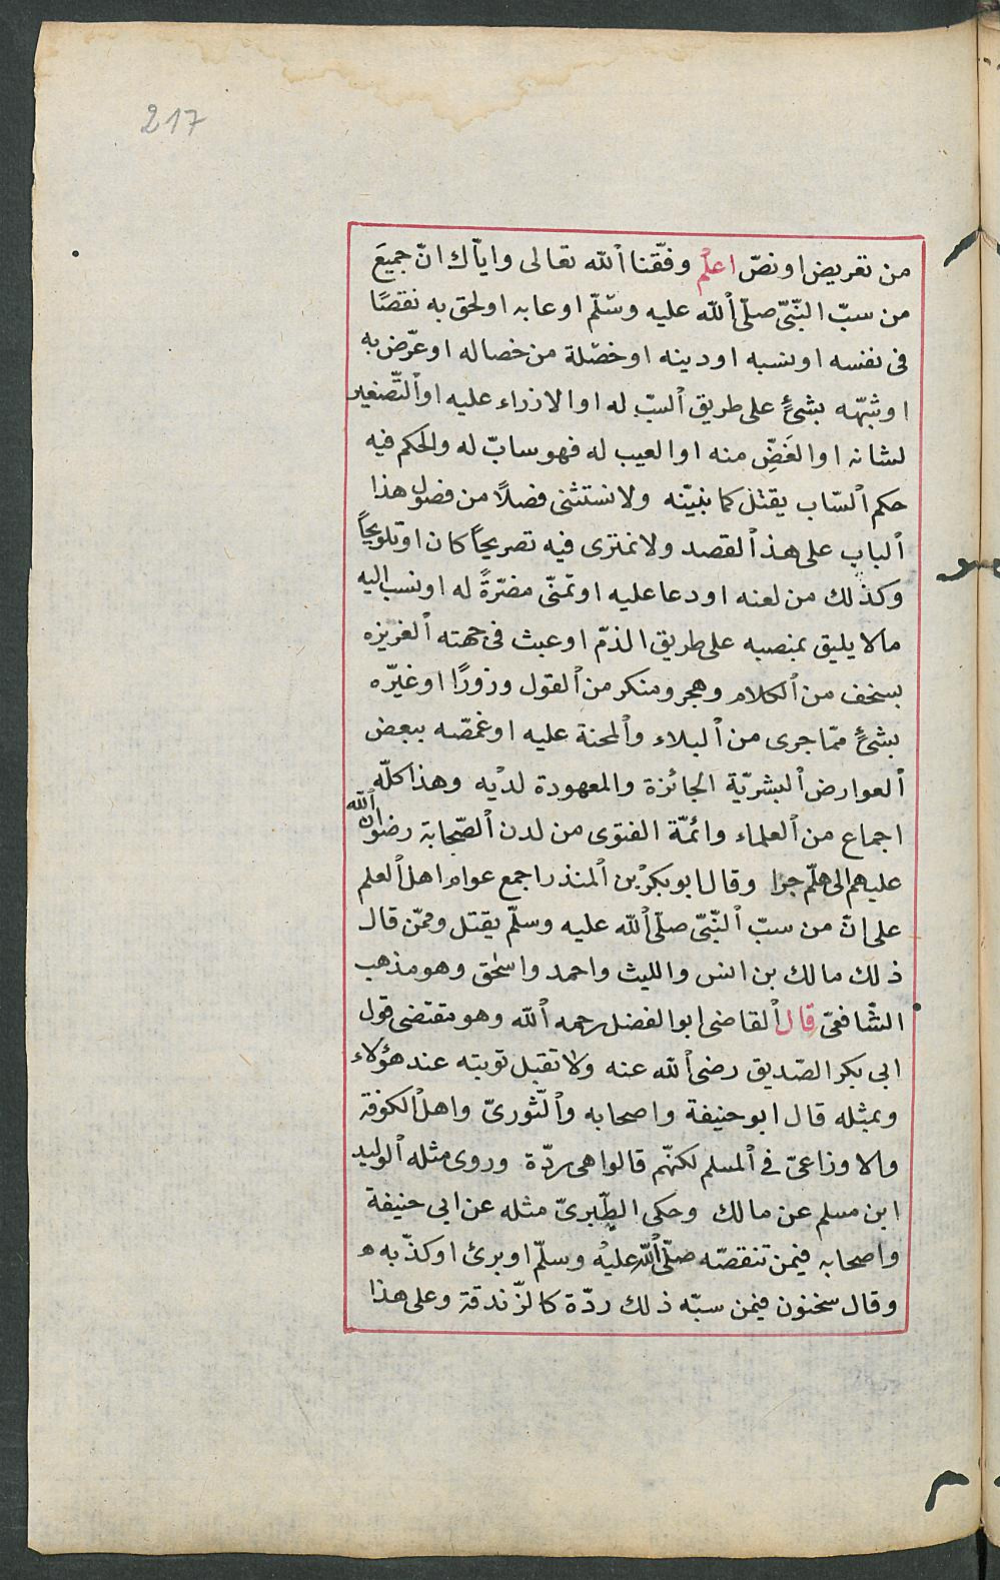 217
من تعريض او نصّ اعلم وفّقنا الله تعالى وايّاك انّ جميعَ
من سبّ النّبىّ صلّى الله عليه وسلّم او عابه او لحق به نقصًا
فى نفسه او نسبه او دينه او خصلة من خصاله او عرّض به
او شبّهه بشئٍ على طريق السبّ له او الازراء عليه او التّصغير
لشانه او الغَضّ منه او العيب له فهو سابّ له والحكم فيه
حكم السّاب يقتل كما نبيّنه ولا نستثنى فصلاً من فصول هذا
الباب على هذ القصد ولا نمترى فيه تصريحاً كان او تلويحاً
وكذلك من لعنه او دعا عليه او تمنّى مضرّةً له او نسب اليه
مالا يليق بمنصبه على طريق الذمّ او عبث فى جهته العزيزه
بسخف من الكلام وهجر ومنكر من القول وزورًا او غيّره
بشئٍ ممّا جرى من البلاء والمحنة عليه او غمصّه ببعض
العوارض البشريّة الجائزة والمعهودة لديْه وهذا كلّه
اجماع من العلماء وائمّة الفتوى من لدن الصّحابة رضوان الله
عليهم الى هلّم جرا وقال ابو بكرْ بن المنذر اجمع عوام اهل العلم
على انّ من سبّ النّبىّ صلّى الله عليه وسلّم يقتل وممّن قال
ذلك مالك بن انس والليث واحمد واسحٰق وهو مذهب
الشّافعىّ قال القاضى ابو الفضل رحمه الله وهو مقتضى قول
ابى بكر الصّديق رضى الله عنه ولا تقبل توبته عند هؤلاء
وبمثله قال ابو حنيفة واصحابه والثّورىّ واهل الكوفة
والاوزاعىّ فى المسلم لكنّهم قالوا هى ردّة وروى مثله الوليد
ابن مسلم عن مالك وحكى الطّبرىّ مثله عن ابى حنيفة
واصحابه فيمن تنقصّه صلّى الله عليْه وسلّم او برئ او كذّبه ه
وقال سحنون فيمن سبّه ذلك ردّة كالزّندقة وعلى هذا